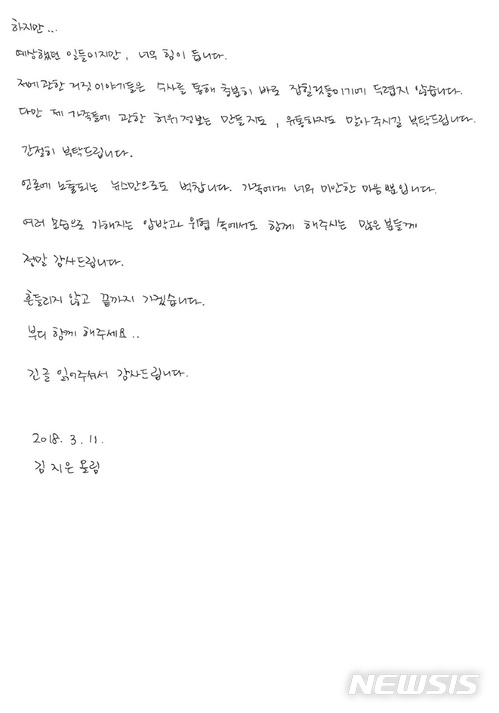 하지만...
예상했던 일들이지만, 너무 힘이 듭니다.
저에 관한 거짓 이야기들은 수사를 통해 충분히 바로 잡힐것들이기에 두렵지 않습니다.
다만 제 가족들에 관한 허위 정보는 만들지도, 유통하지도 말아주시길 부탁드립니다.
간절히 부탁드립니다.
언론에 노출되는 뉴스만으로도 벅찹니다. 가족에게 너무 미안한 마음뿐입니다.
여러 모습으로 가해지는 압박과 위협 속에서도 함께 해주시는 많은 분들께
정말 감사드립니다.
흔들리지 않고 끝까지 가겠습니다.
부디 함께 해주세요..
긴글 읽어주셔서 감사드립니다.
2018. 3. 11.
김지은 올림
NEWSIS